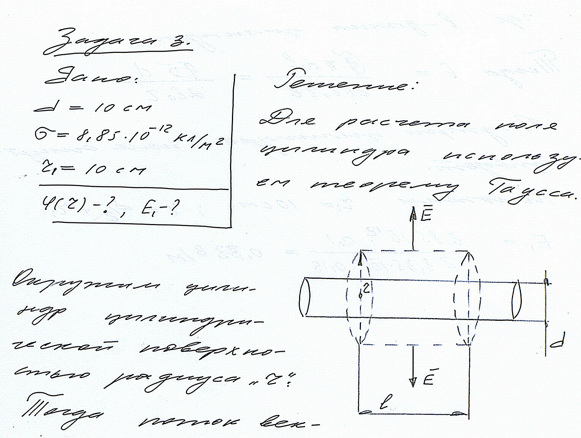 Задача 3.
Дано:
d = 10 см
σ = 8,85·10⁻¹² кл/м²
r₁ = 10 см
φ(r) - ? , E₁ - ?
Решение:
Для расчета поля
цилиндра использу-
ем теорему Гаусса.
Окружим цили-
ндр цилиндри-
ческой поверхно-
стью радиуса „r".
Тогда поток век-
E̅
r
E̅
d
l